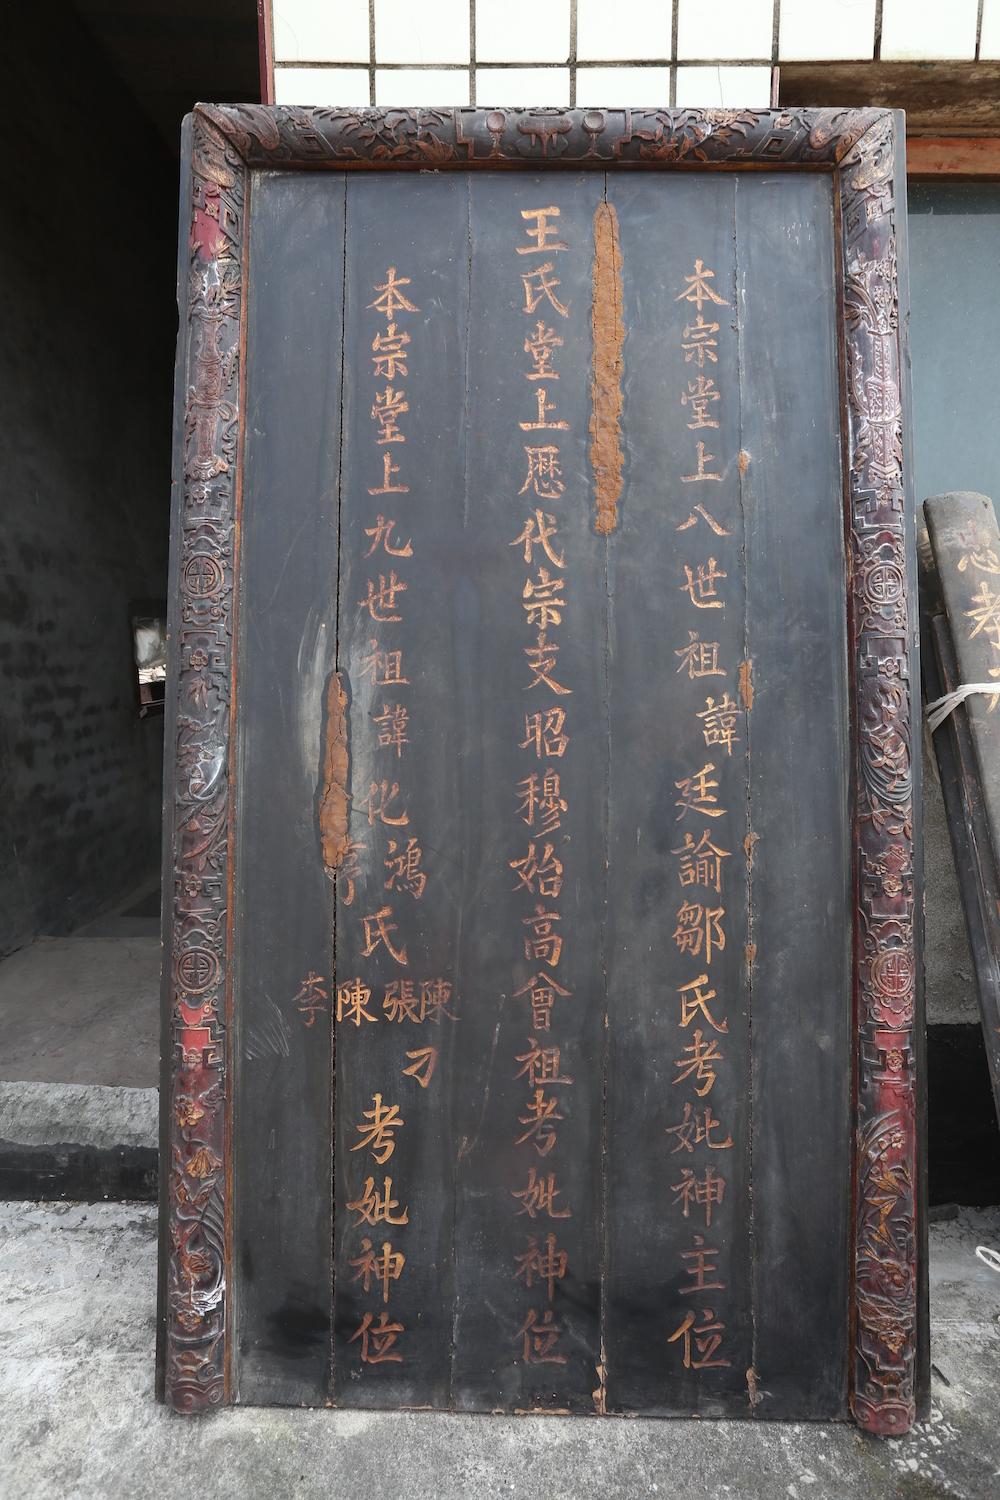 本宗堂上八世祖諱廷諭鄒氏考妣神主位
王氏堂上歷代宗支昭穆始高曾祖考妣神位
本宗堂上九世祖諱化鴻亨氏陳張陳李刁考妣神位
忠孝